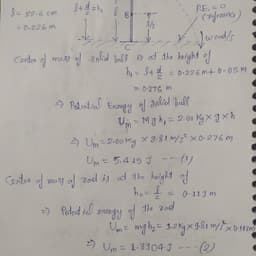 l = 22.6 cm
= 0.226 m
l + d/2 = h₁
B
l/2
C
P.E. = 0
(reference)
ω rad/s
Centre of mass of solid ball is at the height of
h₁ = l + d/2 = 0.226m + 0.05m
= 0.276 m
⇒ Potential Energy of solid ball
U_M = M g h₁ = 2.00 kg × g × h
⇒ U_M = 2.00 kg × 9.81 m/s² × 0.276 m
U_M = 5.415 J --- (1)
Centre of mass of rod is at the height of
h₂ = l/2 = 0.113 m
⇒ Potential energy of the rod
U_m = mgh₂ = kg × 9.81 m/s² ×
⇒ U_m = J --- (2)